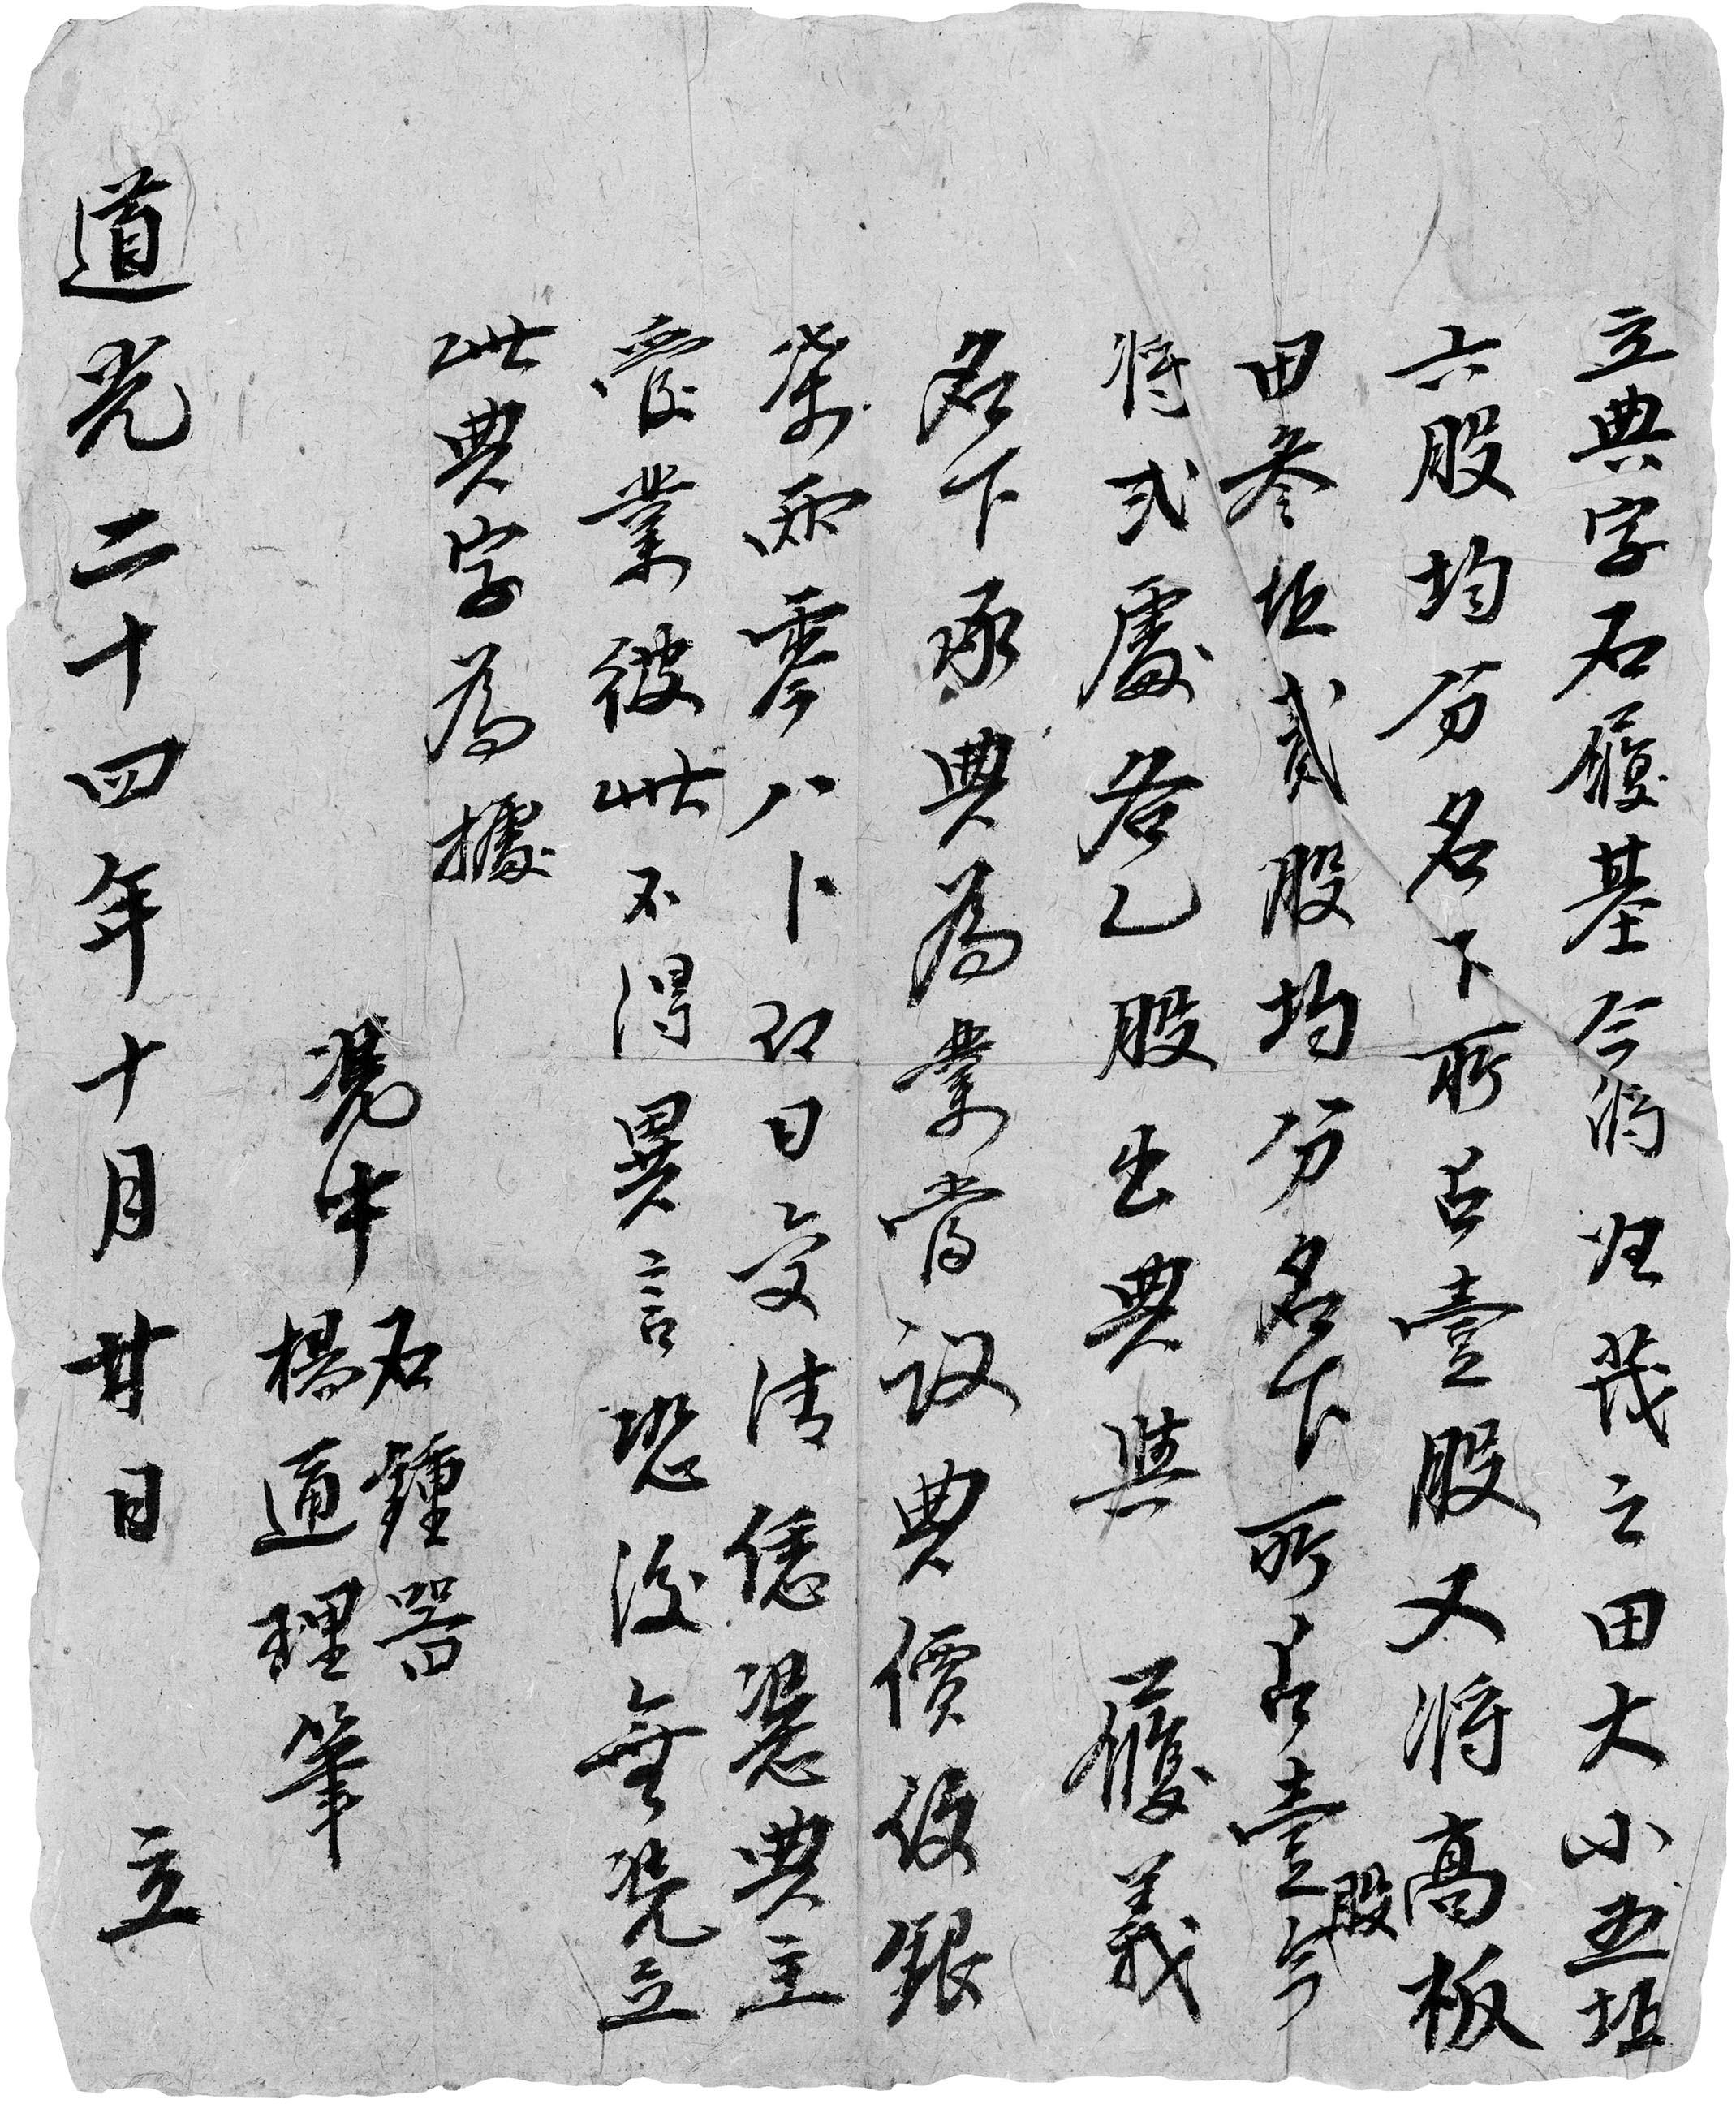 立典字石履基今将归茂之田大小五坵
六股均分名下所占壹股又将高板
田叁坵贰股均分名下所占壹股今
将弍處各乙股出典與 履義
名下承典為業當议典價纹銀
柒兩零八卜即日交清凭典主
管業彼此不得異言恐後無凭立
此典字為據
凴中 石鍾器
楊通理筆
道光二十四年十月廿日 立